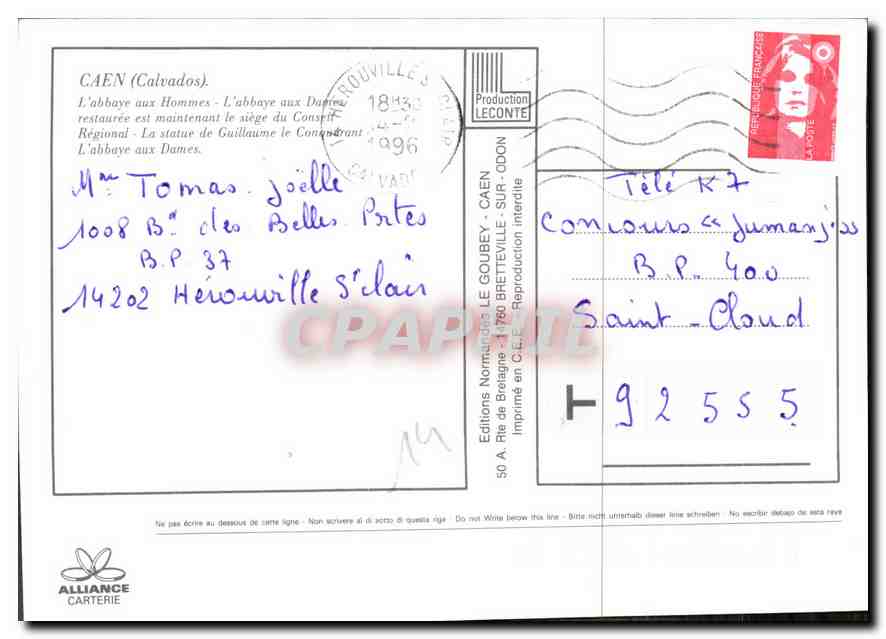 CAEN (Calvados).
L'abbaye aux Hommes - L'abbaye aux Dames
restaurée est maintenant le siège du Conseil
Régional - La statue de Guillaume le Conquérant
L'abbaye aux Dames.
HEROUVILLE S
18H30
1996
CALVADOS
Production
LECONTE
REPUBLIQUE FRANÇAISE
LA POSTE
Mme Tomas Joëlle
1008 Bd des Belles Portes
B.P. 37
14202 Hérouville St Clair
Télé K7
Concours « Jumanji »
B.P. 400
Saint-Cloud
T 92555
Editions Normandes LE GOUBEY - CAEN
50 A. Rte de Bretagne - 14760 BRETTEVILLE - SUR - ODON
Imprimé en C.E.E. - Reproduction interdite
CPAPHIL
14
Ne pas écrire au dessous de cette ligne - Non scrivere al di sotto di questa riga - Do not Write below this line - Bitte nicht unterhalb dieser linie schreiben - No escribir debajo de esta raya
ALLIANCE
CARTERIE